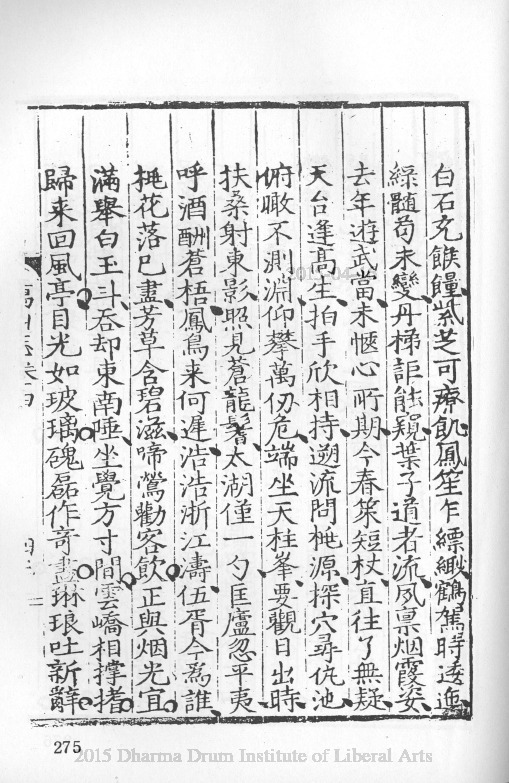 白石充餱饘紫芝可療飢鳳笙乍縹緲鶴駕時逶迤
綠髓苟未變丹梯詎能窺葉子逍者流夙稟烟霞姿
去年遊武當未愜心所期今春策短杖直往了無疑
天台逢高生拍手欣相持遡流問桃源探穴尋仇池
俯瞰不測淵仰攀萬仞危端坐天柱峯要觀日出時
扶桑射東影照見蒼龍鬐太湖僅一勺匡廬忽平夷
呼酒酬蒼梧鳳鳥来何遲浩浩浙江濤伍胥今爲誰
桃花落已盡芳草含碧滋啼鶯勸客飲正與烟光宜
滿舉白玉斗吞却東南陲坐覺方寸間雲嶠相撑搘
歸来回風亭目光如玻璃磈磊作竒畫琳琅吐新辭
志卷四
275
2015 Dharma Drum Institute of Liberal Arts